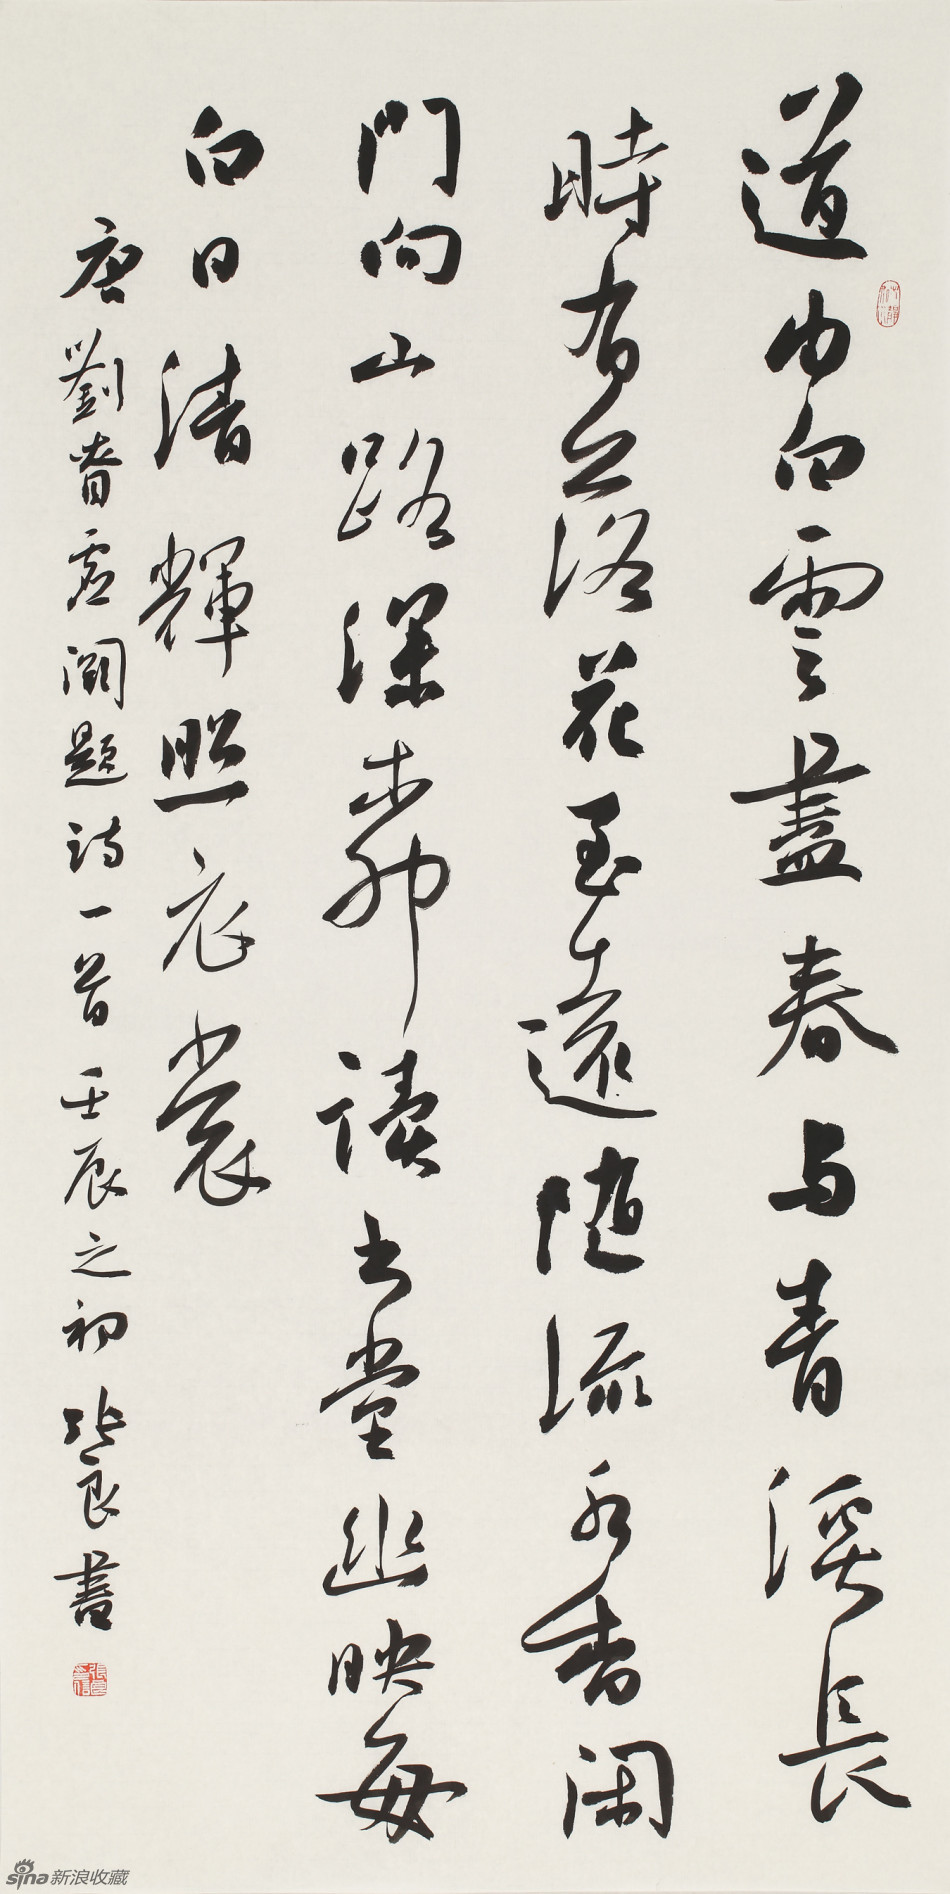 道由白雲盡春与青溪長
時有落花至遠随流水香閑
門向山路深柳讀書堂幽映每
白日清輝照衣裳
唐劉眘虛闕題詩一首壬辰之初 張良書
sina新浪收藏